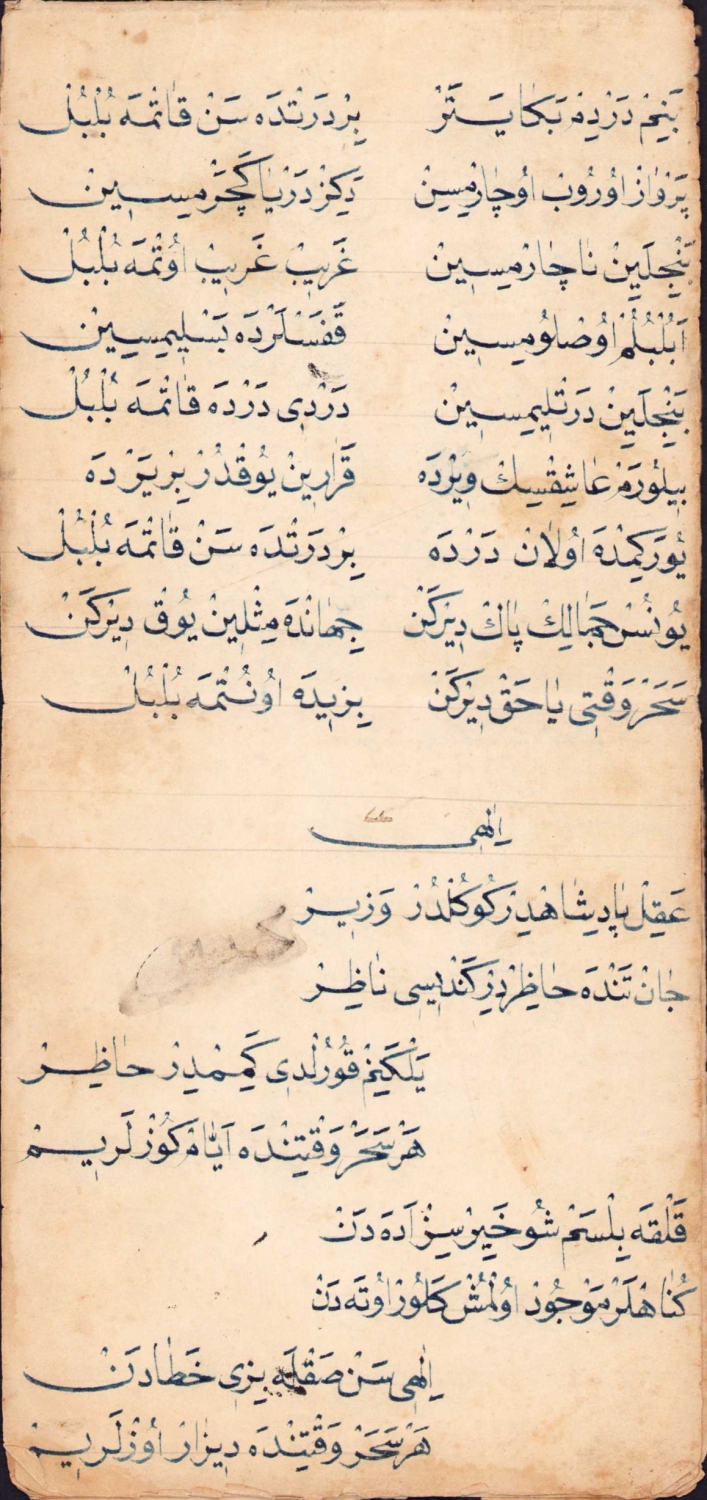 بَنِمْ دَرْدِمْ بَكَا يَتَرْ بِرْ دَرْتْدَه سَنْ قَاتْمَه بُلْبُلْ
پَرْوَازْ اُورُوبْ اُوچَارْمِسِنْ دَكِزْ دَرْيَا كَچَرْمِسِينْ
بَنْجِلَيِنْ نَاچَارْمِسِينْ غَرِيبْ غَرِيبْ اُوتْمَه بُلْبُلْ
اَبُلْبُلُمْ اُوصْلُومِسِينْ قَفَسْلَرْدَه بَسْلِيمِسِينْ
بَنْجِلَيِنْ دَرْتْلِيمِسِينْ دَرْدِى دَرْدَه قَاتْمَه بُلْبُلْ
بِيلُورَمْ عَاشِقْسِكْ وِيرْدَه قَرَارِينْ يُوقْدُرْ بِرْ يَرْدَه
يُورَكِمْدَه اُولَانْ دَرْدَه بِرْ دَرْتْدَه سَنْ قَاتْمَه بُلْبُلْ
يُونُسْ جَمَالِكْ پَاكْ دِيرْكَنْ جِهَانْدَه مِثْلِينْ يُوقْ دِيرْكَنْ
سَحَرْ وَقْتِى يَا حَقْ دِيرْكَنْ بِزِيدَه اُونُتْمَه بُلْبُلْ
اِلٰهِى
عَقِلْ پَادِيشَاهْدِرْ كُوكُلْدُرْ وَزِيرْ
جَانْ تَنْدَه حَاظِرْدِرْ كَنْدِيسِى نَاظِرْ
يَلْكَنِمْ قُورُلْدِى كَمِمْدِرْ حَاظِرْ
هَرْ سَحَرْ وَقْتِنْدَه اَيَّامْ كُوزْلَرِيمْ
قَلْقَه بِلْسَمْ شُو خَيِرْسِزْ اَدَه دَنْ
كُنَاهْلَرْ مَوْجُودْ اُولْمُشْ كَلُورْ اُوتَه دَنْ
اِلٰهِى سَنْ صَقْلَه بِزِى خَطَادَنْ
هَرْ سَحَرْ وَقْتِنْدَه دِيزَارْ اُوزْلَرِيمْ